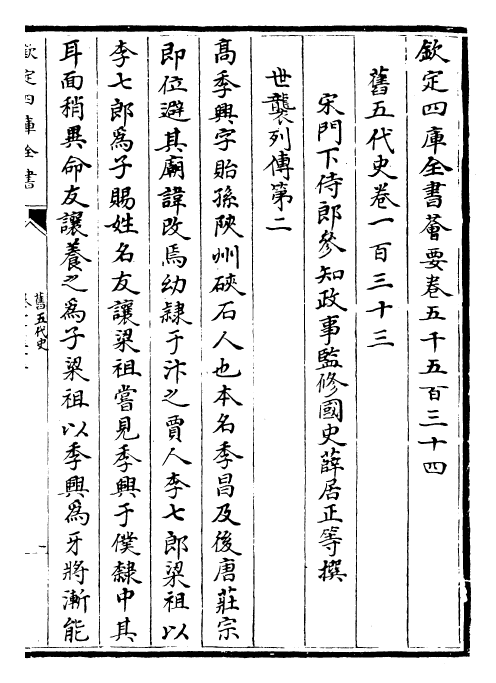 欽定四庫全書薈要卷五千五百三十四
舊五代史卷一百三十三
宋門下侍郎參知政事監修國史薛居正等撰
世襲列傳第二
髙季興字貽孫陝州硤石人也本名季昌及後唐莊宗
即位避其廟諱改焉幼隸于汴之賈人李七郎梁祖以
李七郎為子賜姓名友讓梁祖嘗見季興于僕隸中其
耳面稍異命友讓養之為子梁祖以季興為牙將漸能
欽定四庫全書
舊五代史